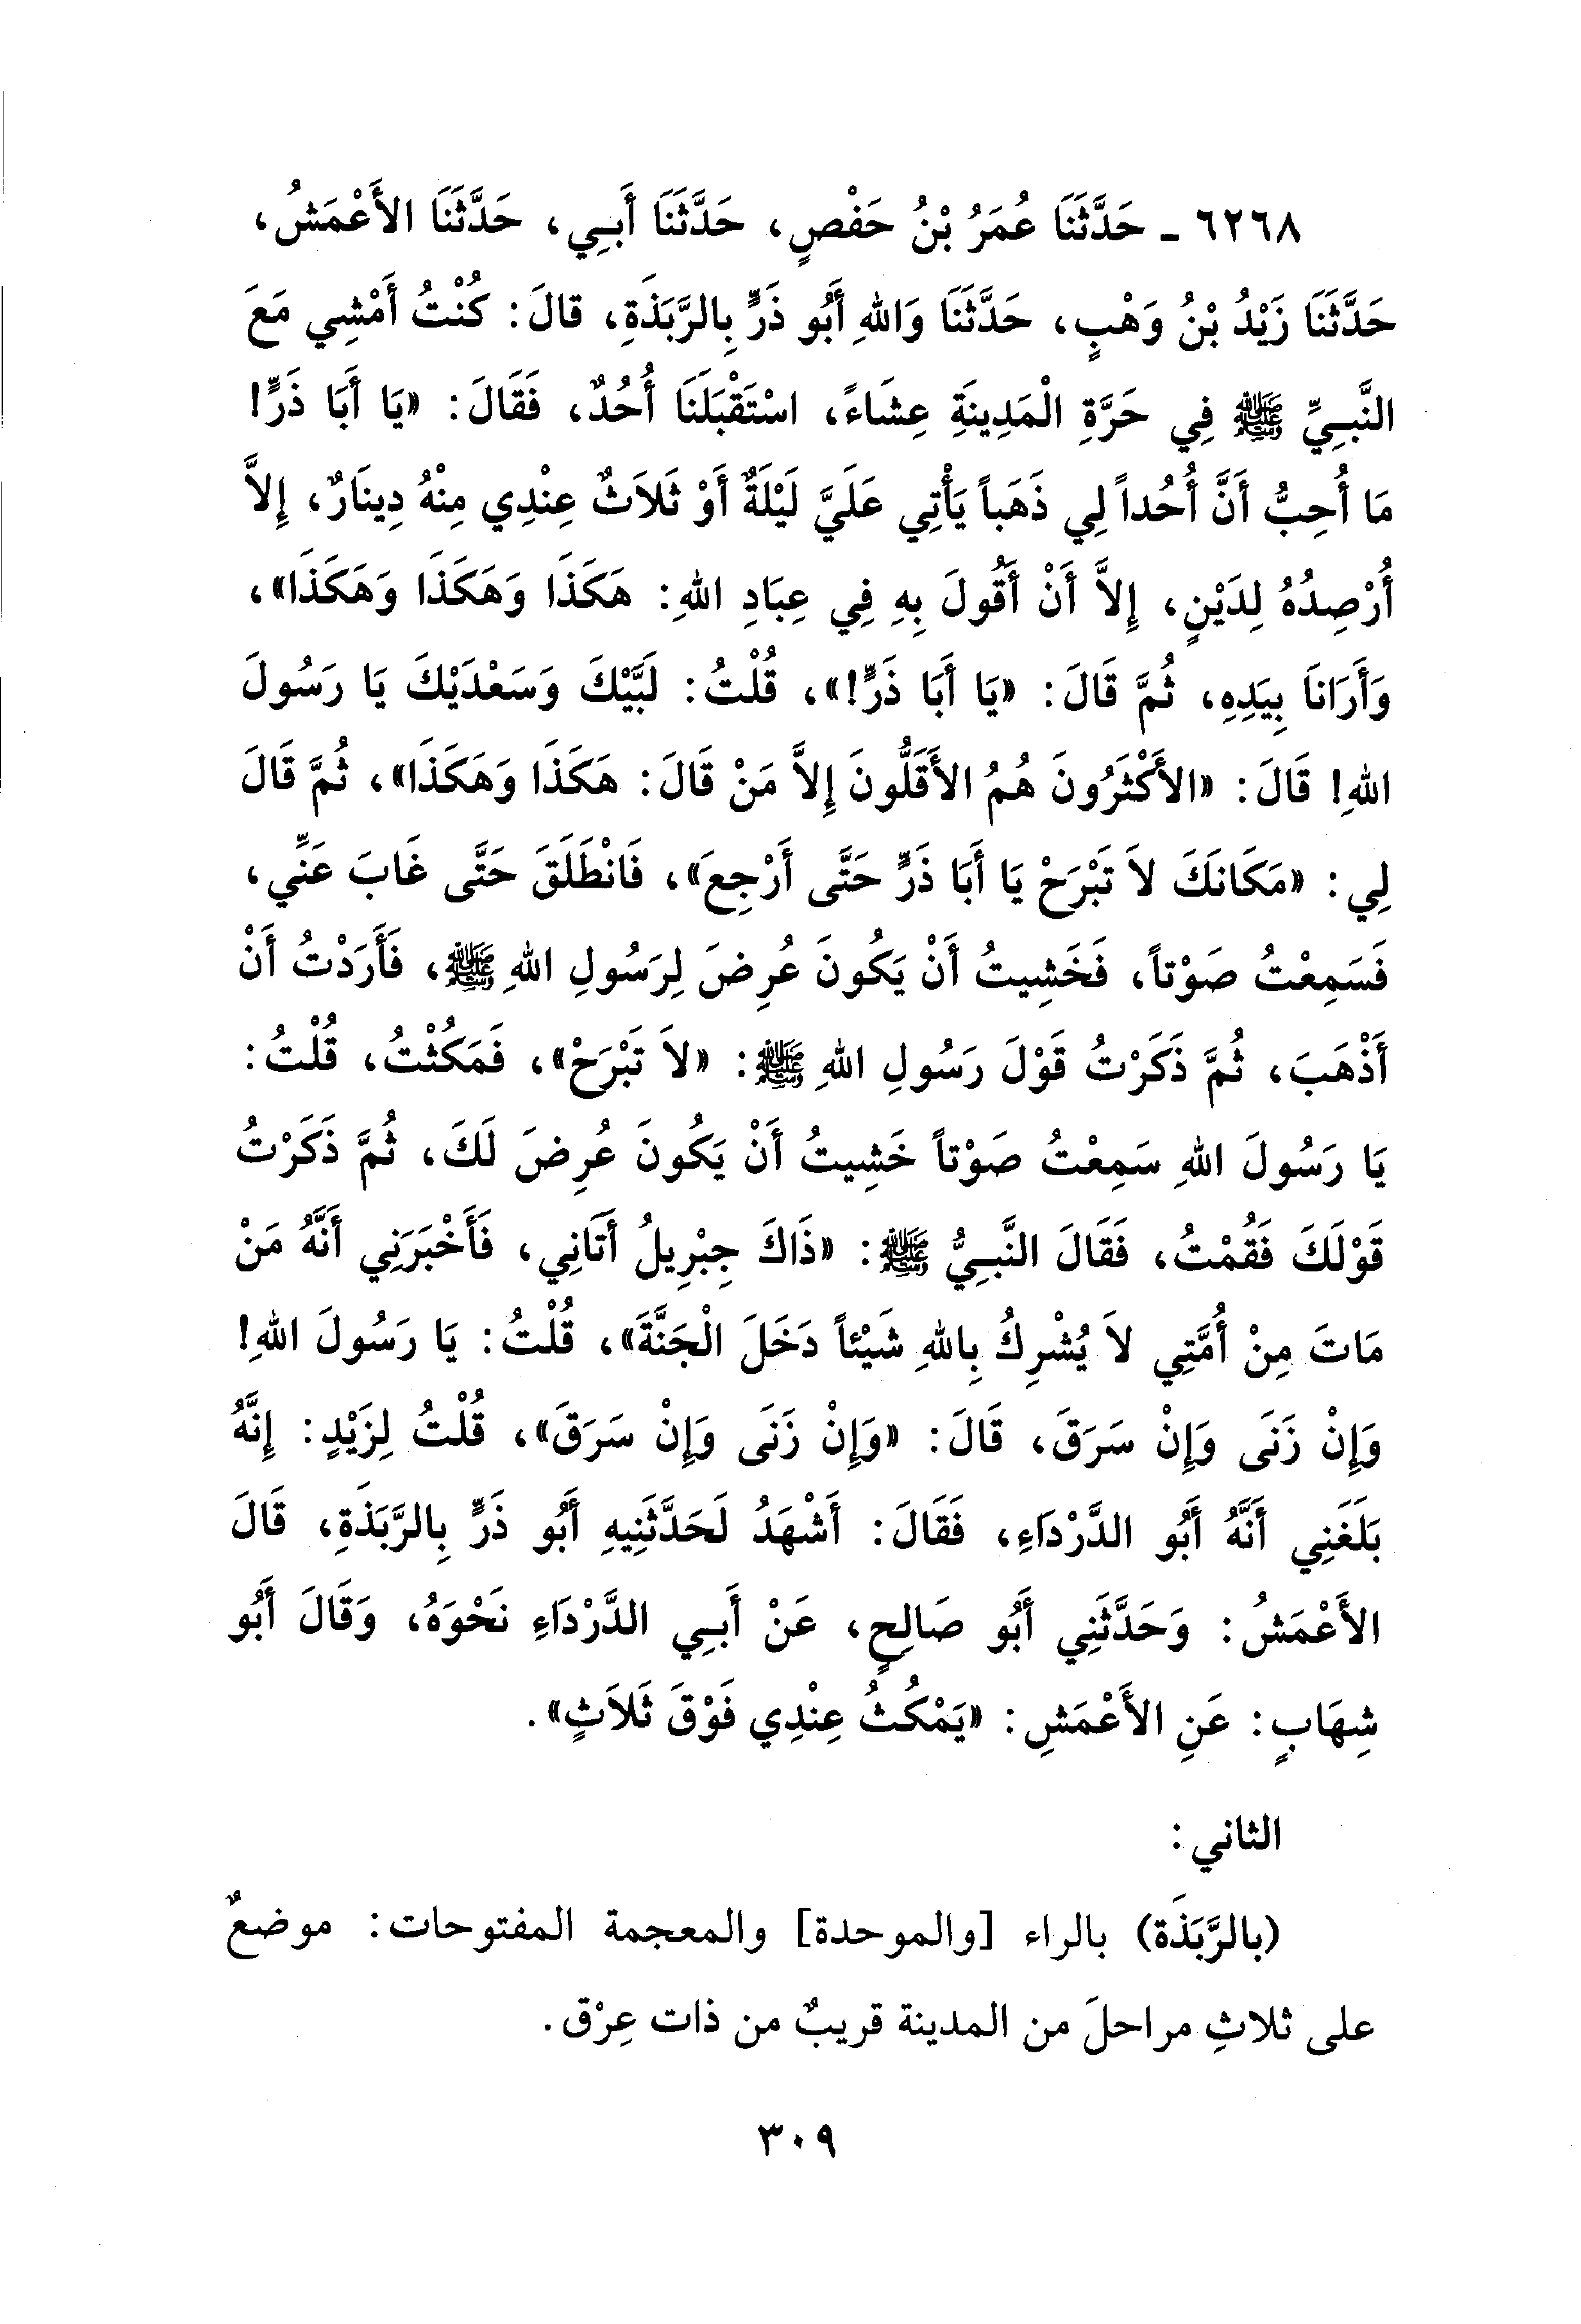 ٦٢٦٨ - حَدَّثَنَا عُمَرُ بْنُ حَفْصٍ، حَدَّثَنَا أَبِي، حَدَّثَنَا الأَعْمَشُ،
حَدَّثَنَا زَيْدُ بْنُ وَهْبٍ، حَدَّثَنَا وَاللهِ أَبُو ذَرٍّ بِالرَّبَذَةِ، قالَ: كُنْتُ أَمْشِي مَعَ
النَّبِيِّ ﷺ فِي حَرَّةِ الْمَدِينَةِ عِشَاءً، اسْتَقْبَلَنَا أُحُدٌ، فَقَالَ: «يَا أَبَا ذَرٍّ!
مَا أُحِبُّ أَنَّ أُحُداً لِي ذَهَباً يَأْتِي عَلَيَّ لَيْلَةٌ أَوْ ثَلاَثٌ عِنْدِي مِنْهُ دِينَارٌ، إِلاَّ
أُرْصِدُهُ لِدَيْنٍ، إِلاَّ أَنْ أَقُولَ بِهِ فِي عِبَادِ اللهِ: هَكَذَا وَهَكَذَا وَهَكَذَا»،
وَأَرَاناَ بِيَدِهِ، ثُمَّ قَالَ: «يَا أَبَا ذَرٍّ!»، قُلْتُ: لَبَّيْكَ وَسَعْدَيْكَ يَا رَسُولَ
اللهِ! قَالَ: «الأَكْثَرُونَ هُمُ الأَقَلُّونَ إِلاَّ مَنْ قَالَ: هَكَذَا وَهَكَذَا»، ثُمَّ قَالَ
لِي: «مَكَانَكَ لاَ تَبْرَحْ يَا أَبَا ذَرٍّ حَتَّى أَرْجِعَ»، فَانْطَلَقَ حَتَّى غَابَ عَنِّي،
فَسَمِعْتُ صَوْتاً، فَخَشِيتُ أَنْ يَكُونَ عُرِضَ لِرَسُولِ اللهِ ﷺ، فَأَرَدْتُ أَنْ
أَذْهَبَ، ثُمَّ ذَكَرْتُ قَوْلَ رَسُولِ اللهِ ﷺ: «لاَ تَبْرَحْ»، فَمَكُثْتُ، قُلْتُ:
يَا رَسُولَ اللهِ سَمِعْتُ صَوْتاً خَشِيتُ أَنْ يَكُونَ عُرِضَ لَكَ، ثُمَّ ذَكَرْتُ
قَوْلَكَ فَقُمْتُ، فَقَالَ النَّبِيُّ ﷺ: «ذَاكَ جِبْرِيلُ أَتَانِي، فَأَخْبَرَنِي أَنَّهُ مَنْ
مَاتَ مِنْ أُمَّتِي لاَ يُشْرِكُ بِاللهِ شَيْئاً دَخَلَ الْجَنَّةَ»، قُلْتُ: يَا رَسُولَ اللهِ!
وَإِنْ زَنَى وَإِنْ سَرَقَ، قَالَ: «وَإِنْ زَنَى وَإِنْ سَرَقَ»، قُلْتُ لِزَيْدٍ: إِنَّهُ
بَلَغَنِي أَنَّهُ أَبُو الدَّرْدَاءِ، فَقَالَ: أَشْهَدُ لَحَدَّثَنِيهِ أَبُو ذَرٍّ بِالرَّبَذَةِ، قَالَ
الأَعْمَشُ: وَحَدَّثَنِي أَبُو صَالِحٍ، عَنْ أَبِي الدَّرْدَاءِ نَحْوَهُ، وَقَالَ أَبُو
شِهَابٍ: عَنِ الأَعْمَشِ: «يَمْكُثُ عِنْدِي فَوْقَ ثَلاَثٍ».
الثاني:
(بالرَّبَذَة) بالراء [والموحدة] والمعجمة المفتوحات: موضعٌ
على ثلاثِ مراحلَ من المدينة قريبٌ من ذات عِرْق.
٣٠٩